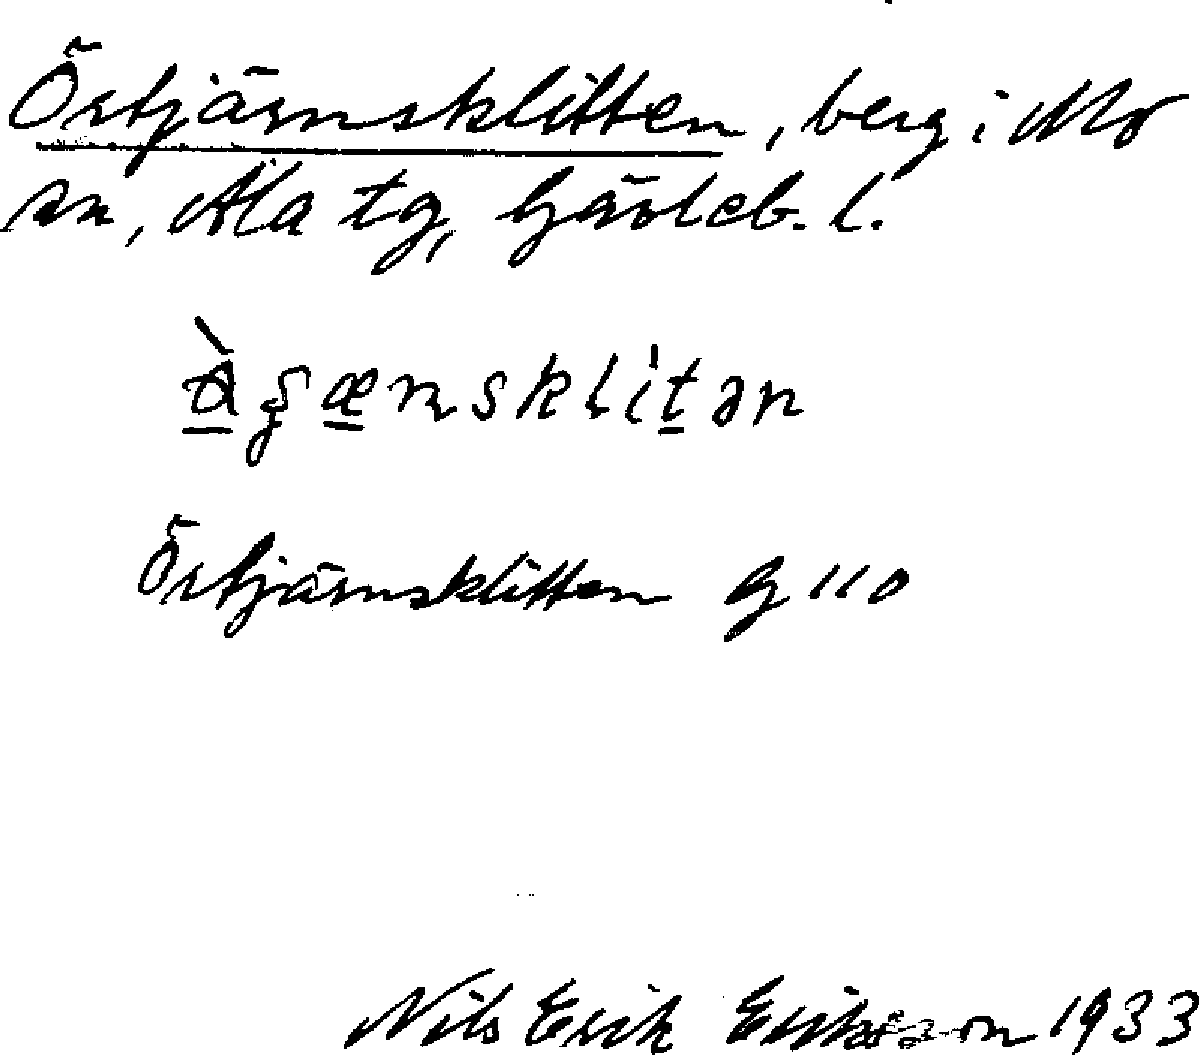 Örtjärnsklitten, berg i Mo
sn, Ala tg, Gävleb. l.
Örtjärnsklitten G 110
Nils Erik Eriksson 1933